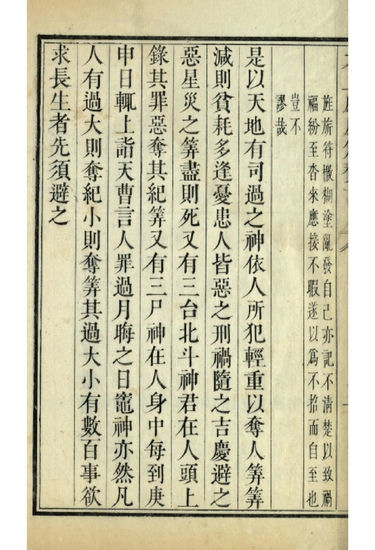 旌旂符檄糊塗亂發自己亦記不清楚以致禍
福紛至沓來應接不暇遂以為不招而自至也
豈不
謬哉
是以天地有司過之神依人所犯輕重以奪人筭筭
減則貧耗多逢憂患人皆惡之刑禍隨之吉慶避之
惡星災之筭盡則死又有三台北斗神君在人頭上
錄其罪惡奪其紀筭又有三尸神在人身中每到庚
申日輒上詣天曹言人罪過月晦之日竈神亦然凡
人有過大則奪紀小則奪筭其過大小有數百事欲
求長生者先須避之